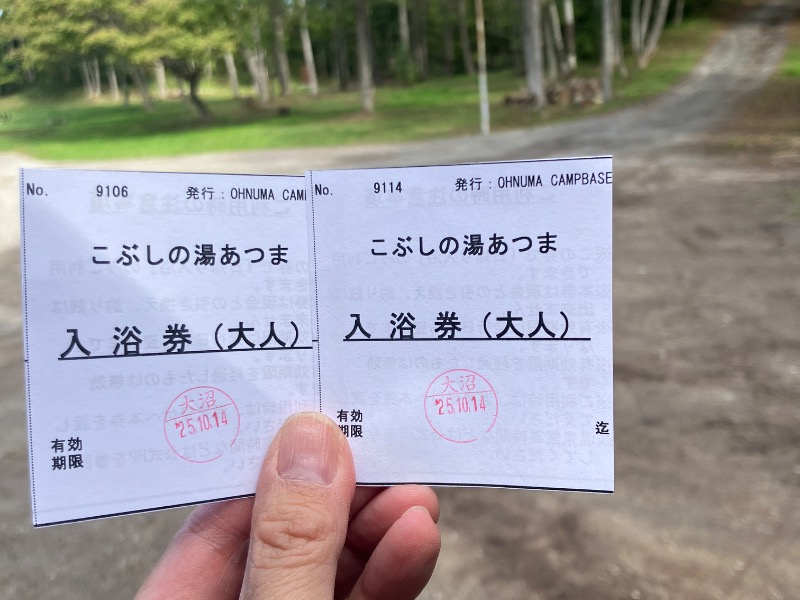 No. 9106 発行：OHNUMA CAM
こぶしの湯あつま
入浴券（大人）
大沼
'25.10.14
有効
期限
No. 9114 発行：OHNUMA CAMPBASE
こぶしの湯あつま
入浴券（大人）
大沼
'25.10.14
有効
期限
迄